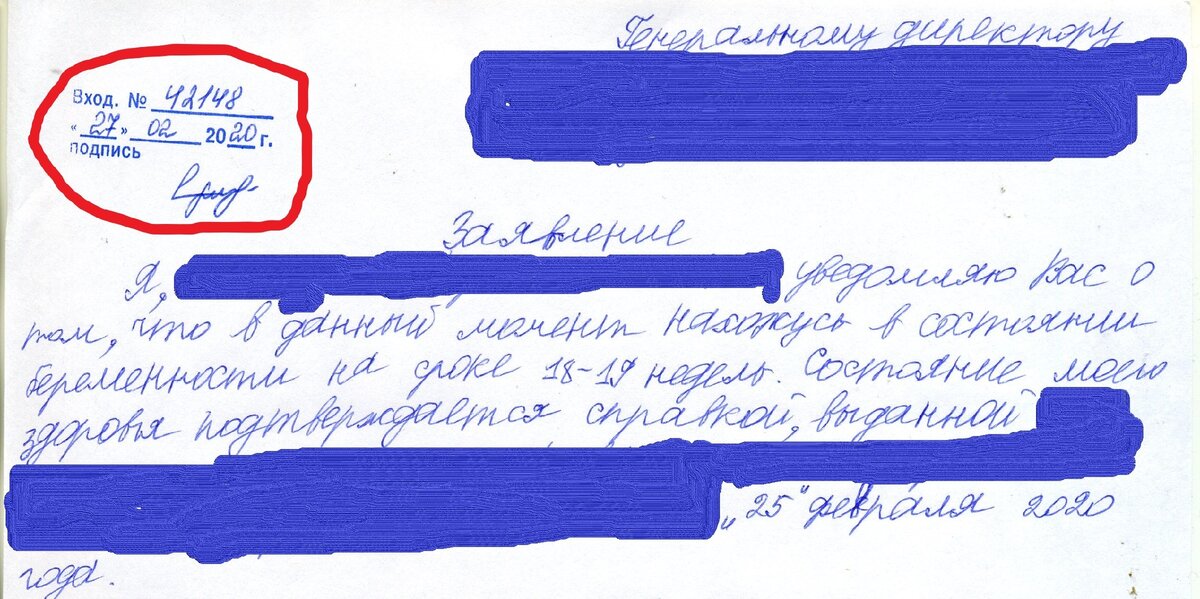 Генеральному директору
Вход. № 42148
"27" 02 2020 г.
подпись
Заявление
Я, уведомляю Вас о
том, что в данный момент нахожусь в состоянии
беременности на сроке 18-19 недель. Состояние моего
здоровья подтверждается справкой, выданной
"25" февраля 2020
года.